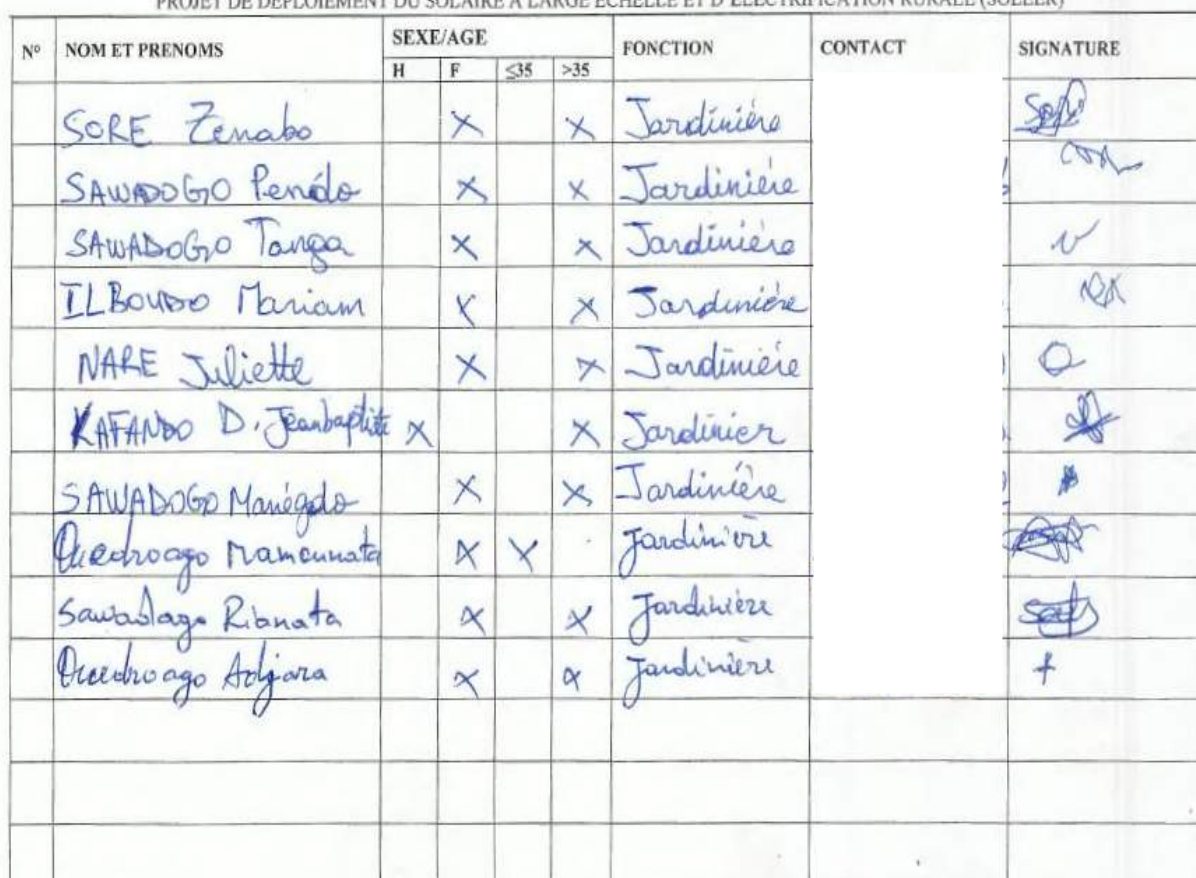 PROJET DE DEPLOIEMENT DU SOLAIRE A LARGE ECHELLE ET D'ELECTRIFICATION RURALE (SOLEER)
N° NOM ET PRENOMS SEXE/AGE FONCTION CONTACT SIGNATURE
H F ≤35 >35
SORE Zenabo X X Jardinière
SAWADOGO Pendo X X Jardinière
SAWADOGO Tanga X X Jardinière
ILBOUDO Mariam X X Jardinière
NARE Juliette X X Jardinière
KAFANDO D. Jeanbaptiste X X Jardinier
SAWADOGO Manégdo X X Jardinière
Ouedraogo Mamounata X X Jardinière
Sawadogo X X Jardinière
Ouedraogo Adjara X X Jardinière